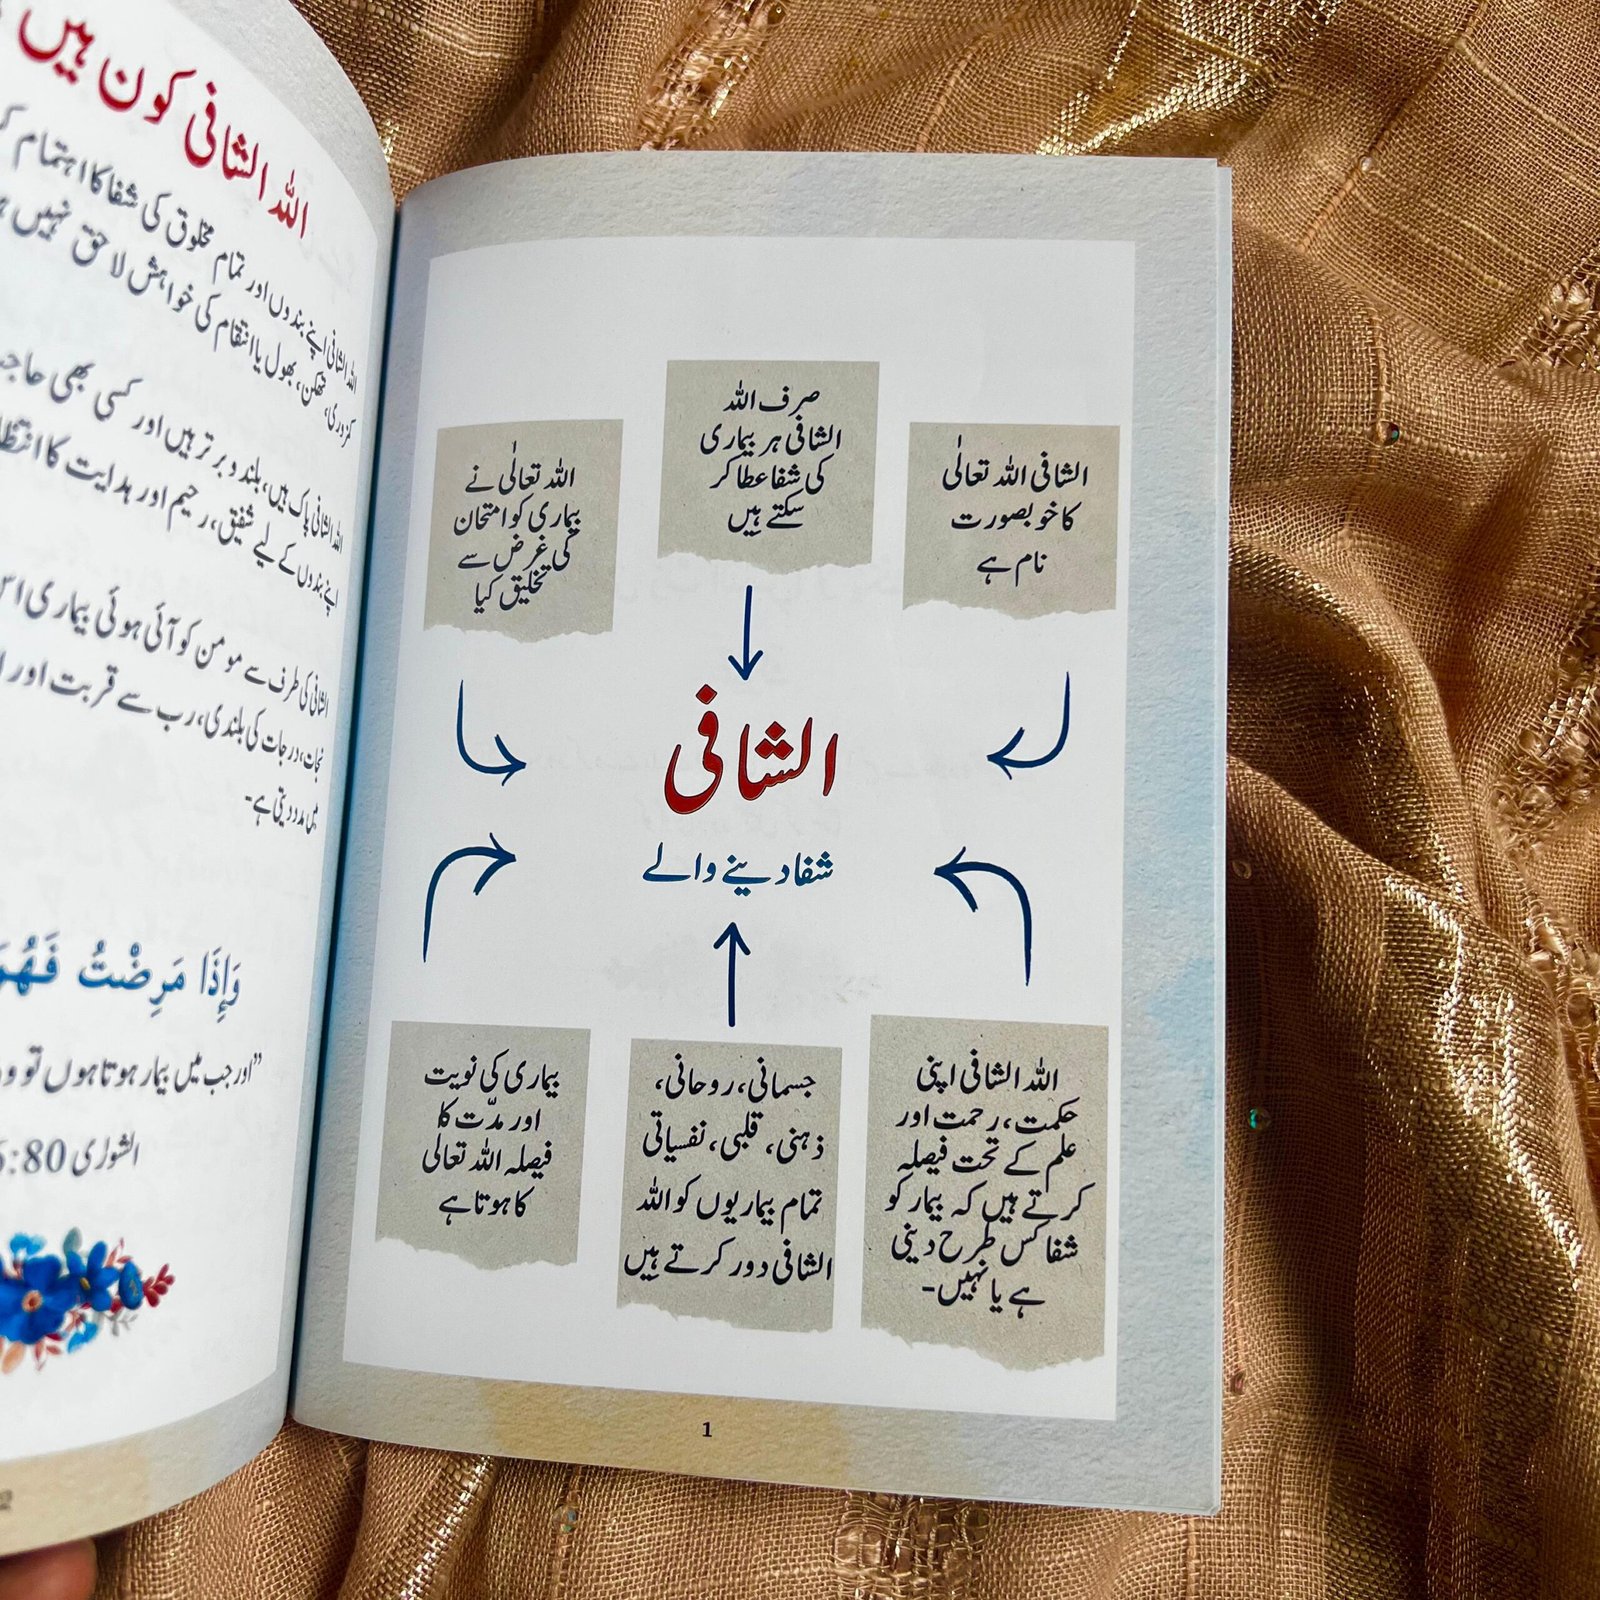 الشافی اللہ تعالٰی
کا خوبصورت
نام ہے
صرف اللہ
الشافی ہر بیماری
کی شفا عطا کر
سکتے ہیں
اللہ تعالٰی نے
بیماری کو امتحان
کی غرض سے
تخلیق کیا
الشافی
شفا دینے والے
اللہ الشافی اپنی
حکمت، رحمت اور
علم کے تحت فیصلہ
کرتے ہیں کہ بیمار کو
شفا کس طرح دینی
ہے یا نہیں۔
جسمانی، روحانی،
ذہنی، قلبی، نفسیاتی
تمام بیماریوں کو اللہ
الشافی دور کرتے ہیں
بیماری کی نویت
اور مدّت کا
فیصلہ اللہ تعالٰی
کا ہوتا ہے
1
اللہ الشافی کون ہیں
اللہ الشافی اپنے بندوں اور تمام مخلوق کی شفا کا اہتمام
کمزوری، تھکن، بھول یا انتقام کی خواہش لاحق نہیں
اللہ الشافی پاک ہیں، بلند و برتر ہیں اور کسی بھی
اپنے بندوں کے لیے شفیق، رحیم اور ہدایت کا
الشافی کی طرف سے مومن کو آئی ہوئی بیماری
نجات، درجات کی بلندی، رب سے قربت اور
میں مدد دیتی ہے۔
وَإِذَا مَرِضْتُ
"اور جب میں بیمار ہوتا ہوں تو
الشورٰی :80
2